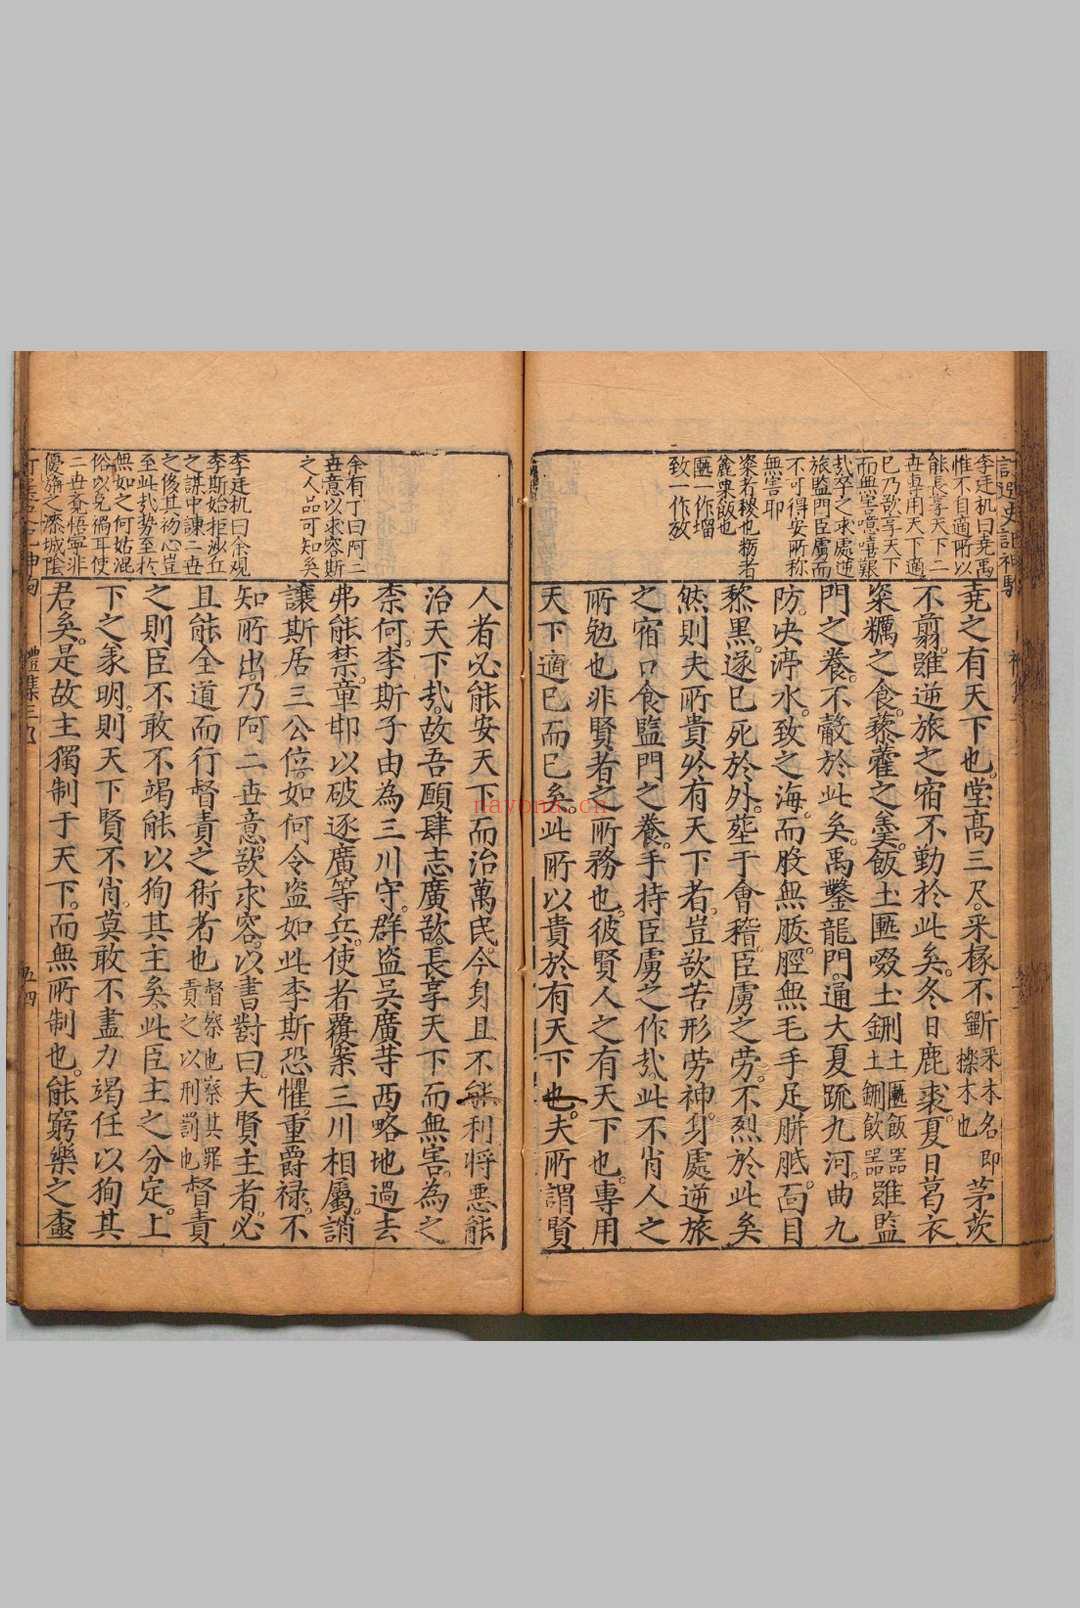 李廷机曰堯禹
惟不自適所以
能長享天下二
世專用天下適
已乃欲享天下
而無害噫嘻艱
哉卒之求處逆
旅監門臣虜而
不可得安所称
無害耶
粢者稷也粝者
麄粟飯也
匭一作塯
致一作放
堯之有天下也。堂高三尺。采椽不斲采木名即櫟木也茅茨
不翦。雖逆旅之宿不勤於此矣。冬日鹿裘。夏日葛衣
粢糲之食。藜藿之羹。飯土匭啜土鉶土匭飯器土鉶飲器雖監
門之養。不觳於此矣。禹鑿龍門。通大夏疏九河。曲九
防。决渟水。致之海。而股無胈。脛無毛手足胼胝。面目
黎黑。遂已死於外。塟于會稽。臣虜之勞。不烈於此矣
然則夫所貴於有天下者。豈欲苦形勞神。身處逆旅
之宿口食監門之養。手持臣虜之作哉。此不肖人之
所勉也非賢者之所務也。彼賢人之有天下也。專用
天下適已而已矣。此所以貴於有天下也。夫所謂賢
余有丁曰阿二
世意以求容斯
之人品可知矣
李廷机曰余观
李斯始拒沙丘
之謀中諫二世
之侈其初心豈
至此哉勢至於
無如之何姑混
俗以免禍耳使
二世悟寧非
優旃之漆城陰
人者必能安天下而治萬民。今身且不能利將惡能
治天下哉。故吾願肆志廣欲。長享天下而無害。為之
柰何。李斯子由為三川守。群盗吳廣等西略地過去
弗能禁。章邯以破逐廣等兵。使者覆案三川相屬。誚
讓斯居三公位。如何令盗如此李斯恐懼重爵祿。不
知所出。乃阿二世意。欲求容。以書對曰。夫賢主者。必
且能全道而行督責之術者也督察也察其罪責之以刑罰也督責
之則臣不敢不竭能以狥其主矣。此臣主之分定。上
下之義明。則天下賢不肖。莫敢不盡力竭任以狥其
君矣。是故主獨制于天下。而無所制也。能窮樂之